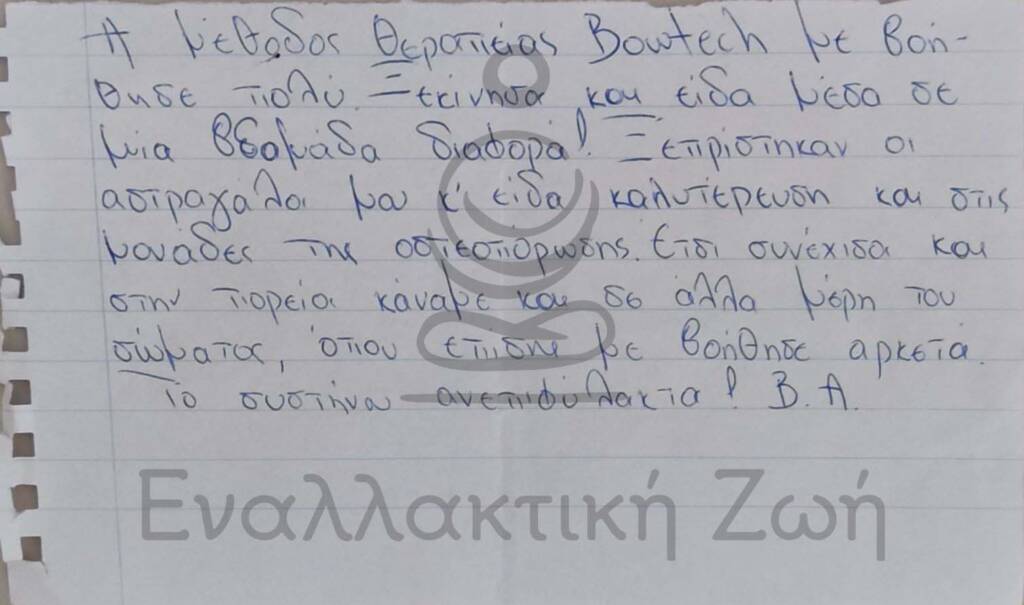 Η μέθοδος θεραπείας Bowtech με βοή-
θησε πολύ. Ξεκίνησα και είδα μέσα σε
μία βδομάδα διαφορά! Ξεπρίστηκαν οι
αστραγάλοι μου κ' είδα καλυτέρευση και στις
μονάδες της οστεοπόρωσης. Ετσι συνέχισα και
στην πορεία κάναμε και σε άλλα μέρη του
σώματος, όπου επίσης με βοήθησε αρκετά.
Το συστήνω ανεπιφύλακτα! Β.Α.
Εναλλακτική Ζωή